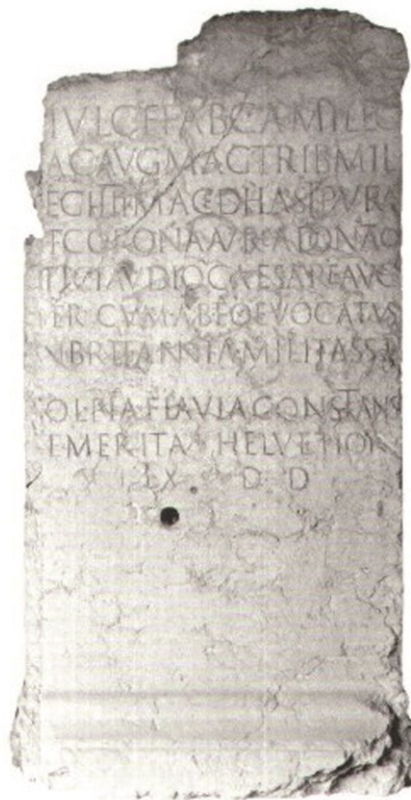 IVL C F FAB CAMILL
AC AVG MAG TRIB MIL
LEG IIII MACED HAST PVRA
ET CORONA AVREA DONATO
TI CLAVDIO CAESARE AVG
GER CVM AB EO EVOCATVS
IN BRITANNIA MILITASSET
COL PIA FLAVIA CONSTANS
EMERITA HELVETIOR
EX D D